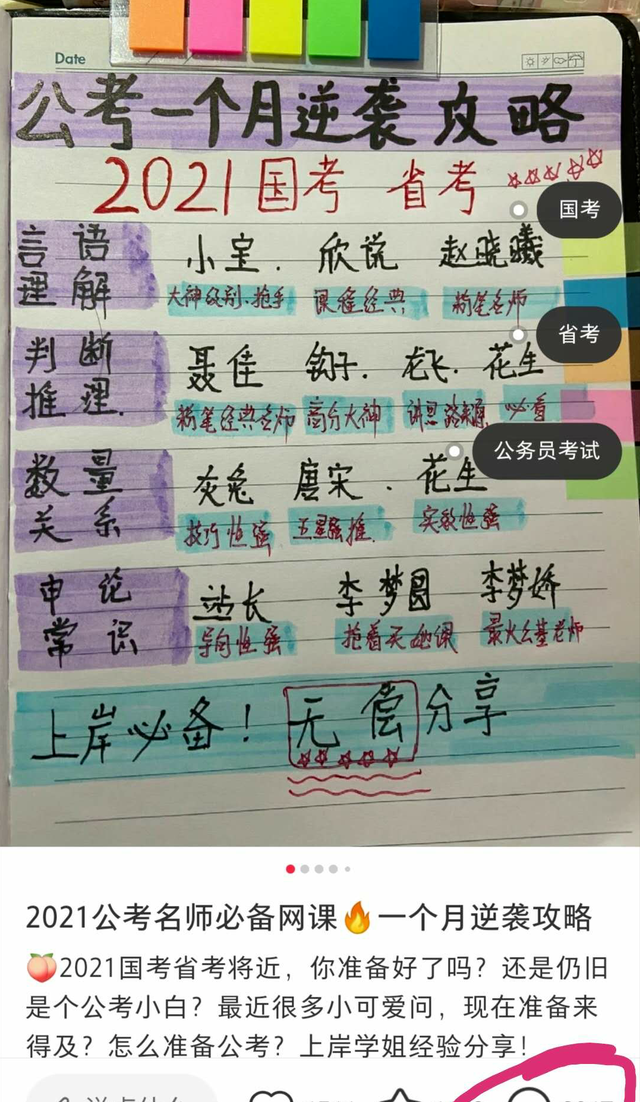 Date
公考一个月逆袭攻略
2021国考 省考
国考
言语理解 小宝. 欣说 赵晓曦
大神级别.抢手 课程经典 粉笔名师
省考
判断推理. 聂佳 钩子. 龙飞. 花生
粉笔经典名师 高分大神 讲思路来源 必看
公务员考试
数量关系 灰兔 唐宋. 花生
技巧性强 五星强推 实效性强
申论常识 站长 李梦圆 李梦娇
导向性强 抢着买她课 最火公基老师
上岸必备! 无尝分享
2021公考名师必备网课🔥一个月逆袭攻略
🍑2021国考省考将近，你准备好了吗？还是仍旧
是个公考小白？最近很多小可爱问，现在准备来
得及？怎么准备公考？上岸学姐经验分享！